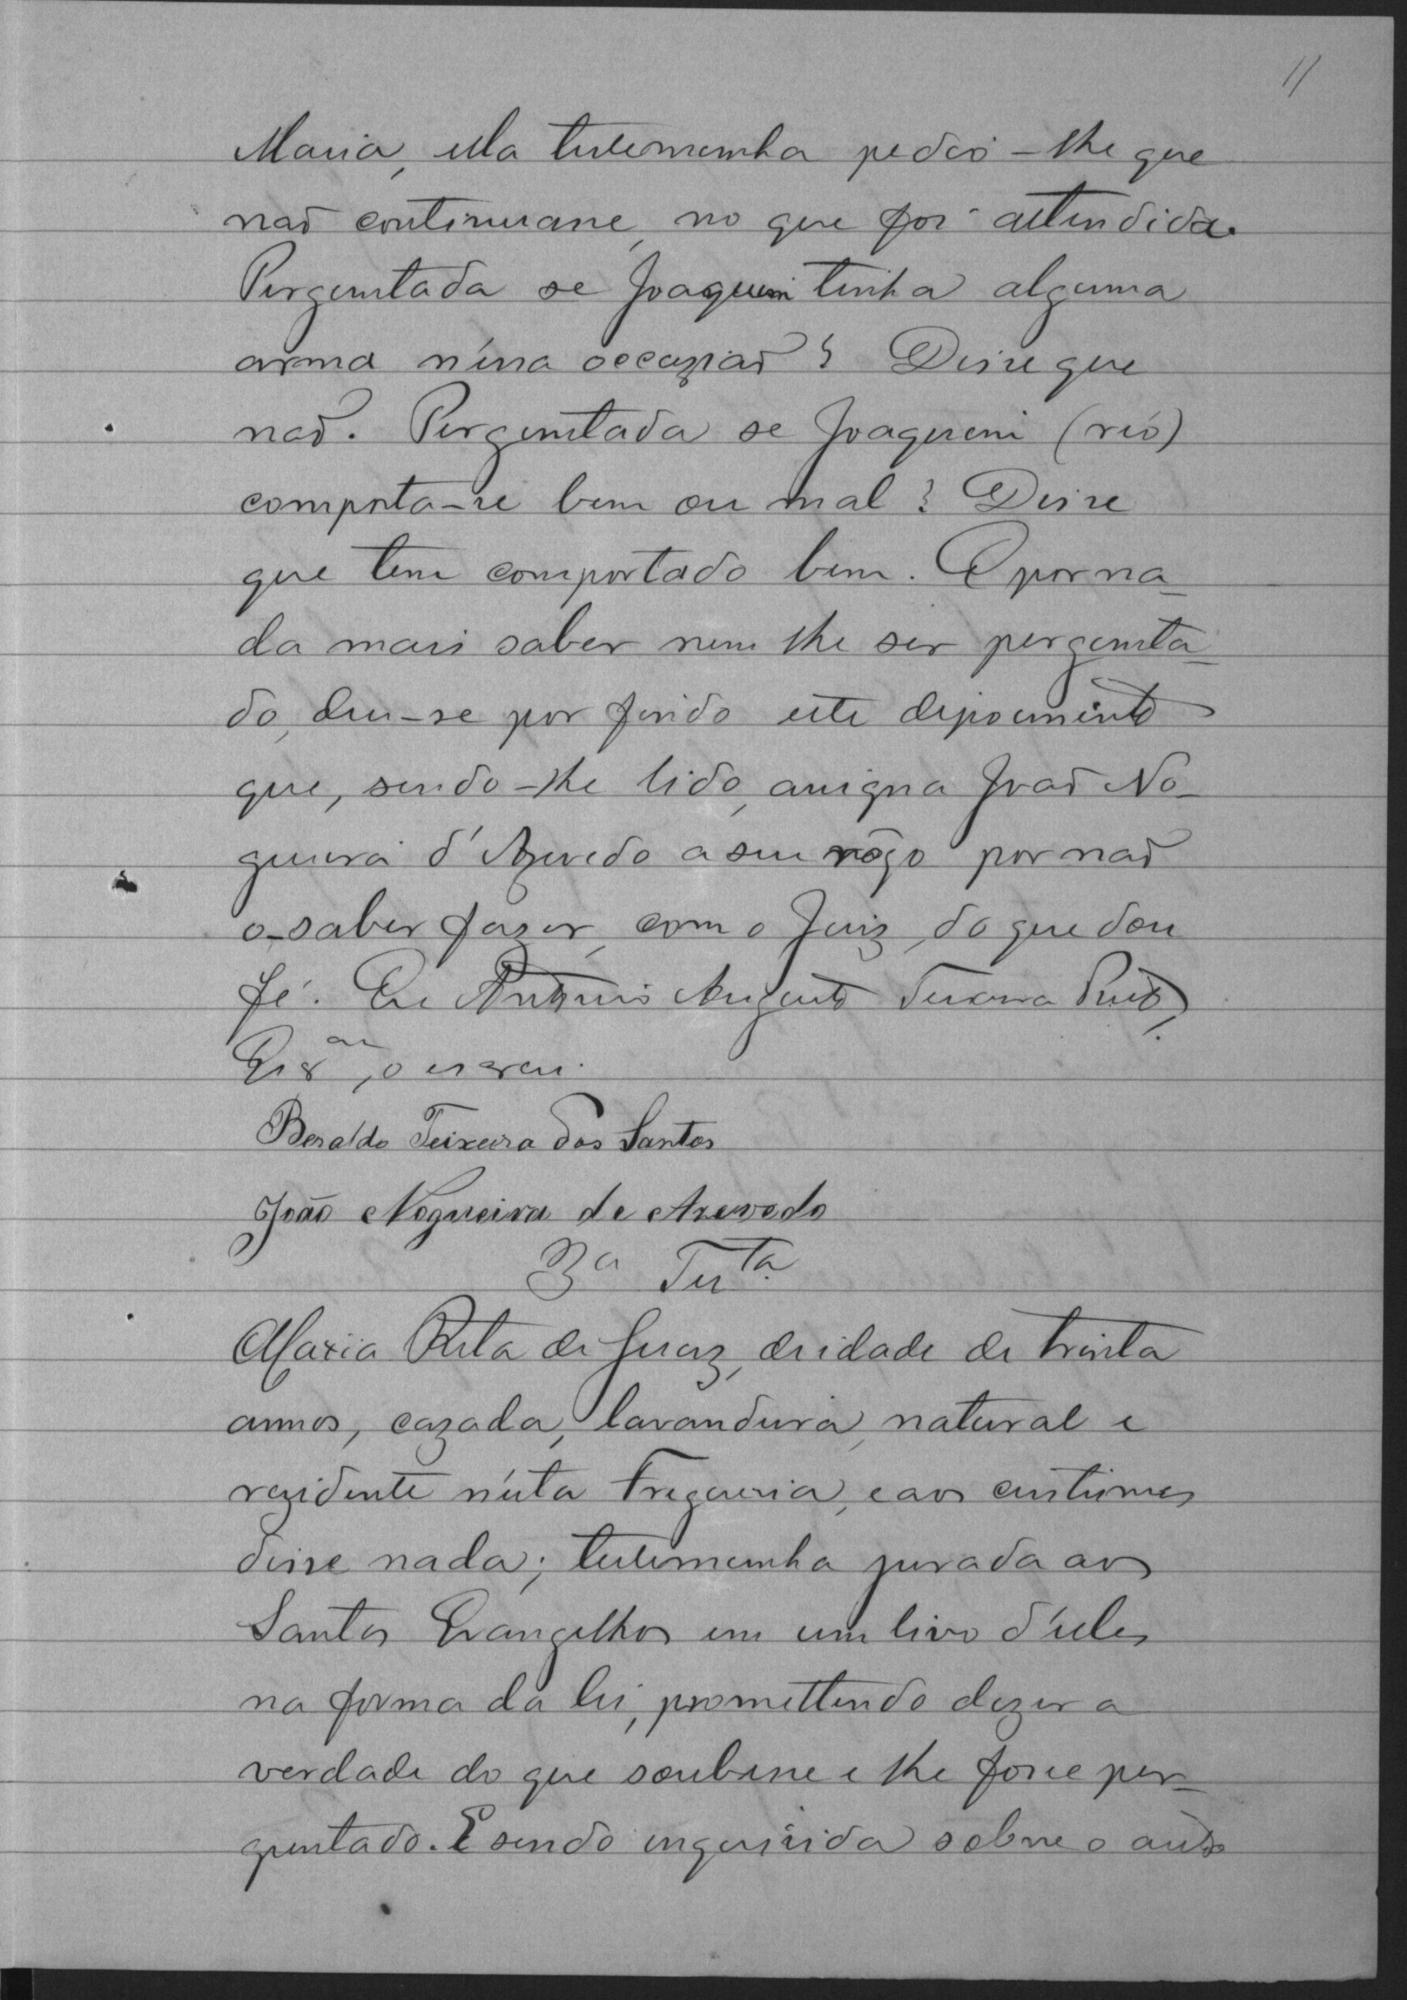 11
Maria, ella testemunha pedio-lhe que
não continuasse, no que foi attendida.
Perguntada se Joaquim tinha alguma
arma n'essa occazião? Disse que
não. Perguntada se Joaquim (réo)
comporta-se bem ou mal? Disse
que tem comportado bem. E por na-
da mais saber nem lhe ser pergunta-
do, deu-se por findo este depoimento
que, sendo-lhe lido, assigna João No-
gueira d'Azevedo a seu rôgo por não
o saber fazer, com o Juiz, do que dou
fé. Eu Antonio Augusto Pinto,
Escr.am, o escrevi.
Beraldo Teixeira dos Santos
João Nogueira de Azevedo
3a Testa.
Maria Rita de Jesuz, de idade de trinta
annos, cazada, lavandeira, natural e
rezidente n'esta Freguezia, e aos custumes
disse nada; testemunha jurada aos
Santos Evangelhos em um livro d'elles
na forma da lei, promettendo dizer a
verdade do que soubesse e lhe fosse per-
guntado. E sendo inquirida sobre o auto